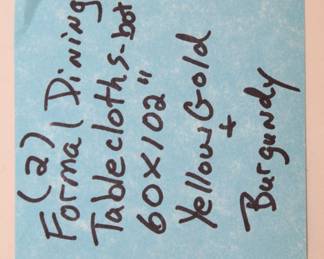 (2)
Formal Dining
Tablecloths-bot
60x102"
Yellow Gold
+
Burgundy